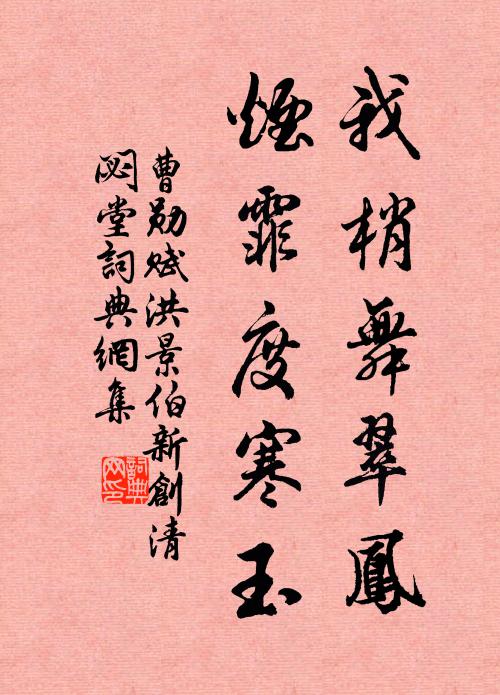 我梢舞翠鳳
煙霏度寒玉
曹勛賦洪景伯新創清
閟堂詞典網集
詞典網印